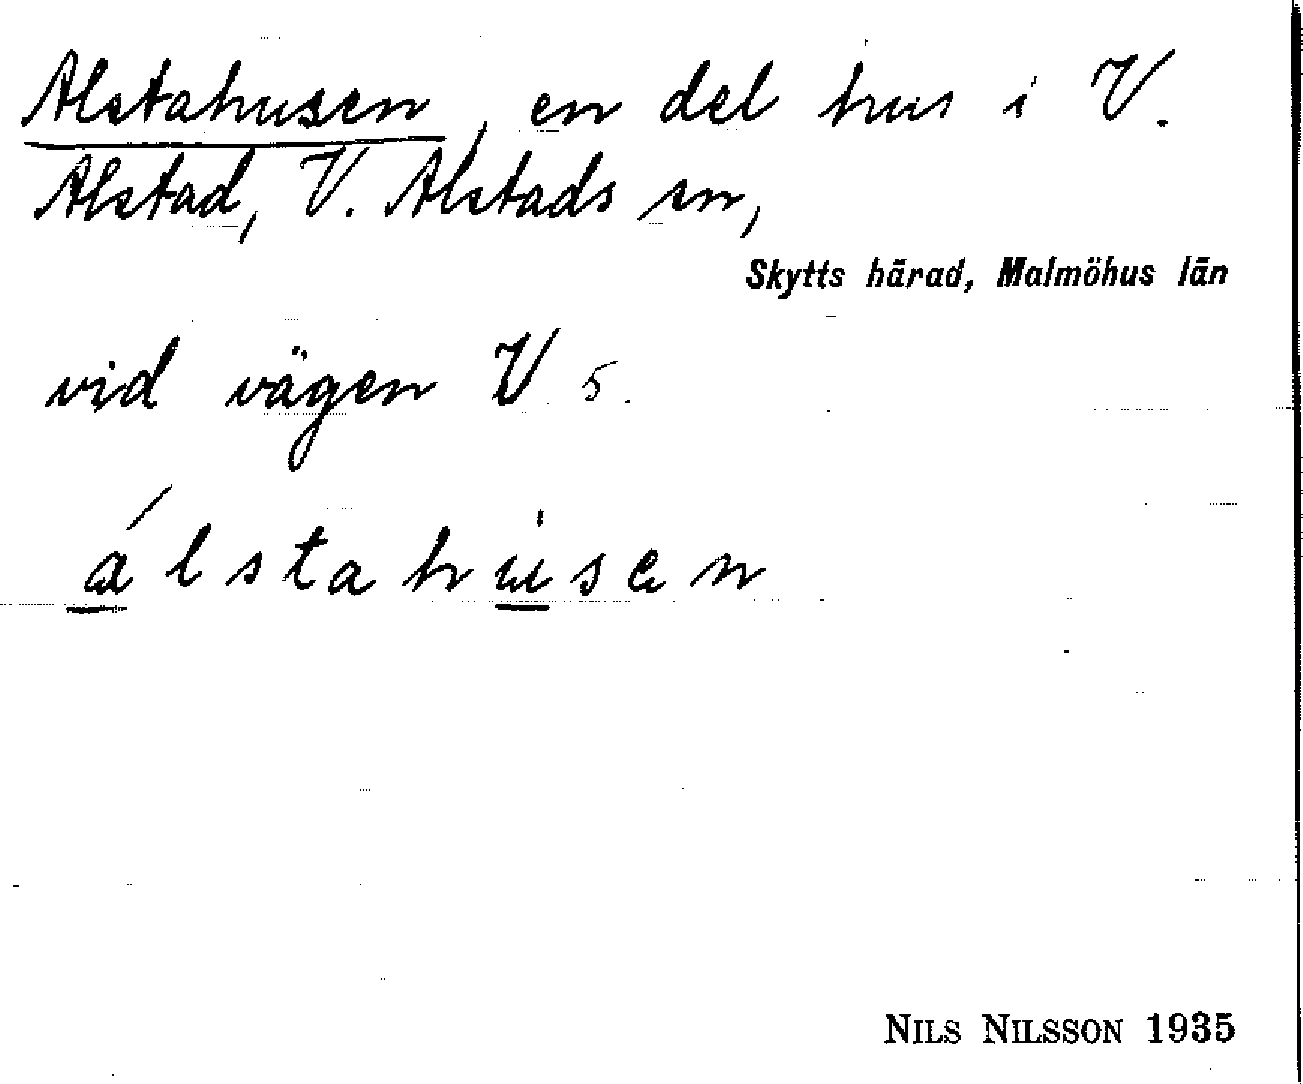 Alstahusen, en del hus i V.
Alstad, V. Alstads sn,
Skytts härad, Malmöhus län
vid vägen V 5.
álstahu̍sen
NILS NILSSON 1935